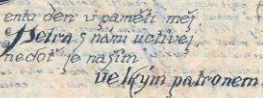 enta den v paměti měj
Petra s námi uctívej
neboť je naším
velkým patronem.